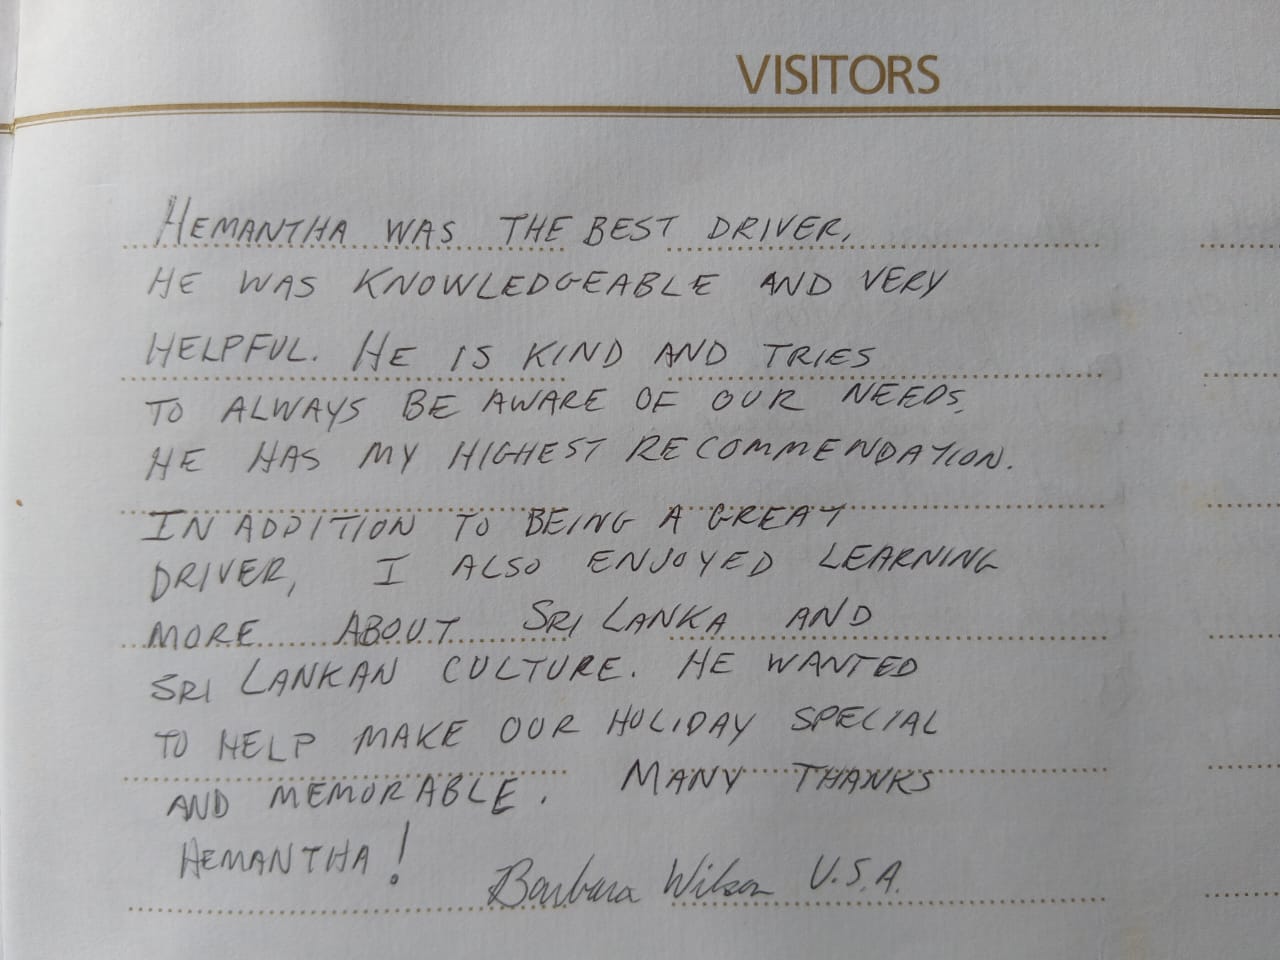 VISITORS
HEMANTHA WAS THE BEST DRIVER,
HE WAS KNOWLEDGEABLE AND VERY
HELPFUL. HE IS KIND AND TRIES
TO ALWAYS BE AWARE OF OUR NEEDS.
HE HAS MY HIGHEST RECOMMENDATION.
IN ADDITION TO BEING A GREAT
DRIVER, I ALSO ENJOYED LEARNING
MORE ABOUT SRI LANKA AND
SRI LANKAN CULTURE. HE WANTED
TO HELP MAKE OUR HOLIDAY SPECIAL
AND MEMORABLE. MANY THANKS
HEMANTHA!
Barbara Wilson U.S.A.